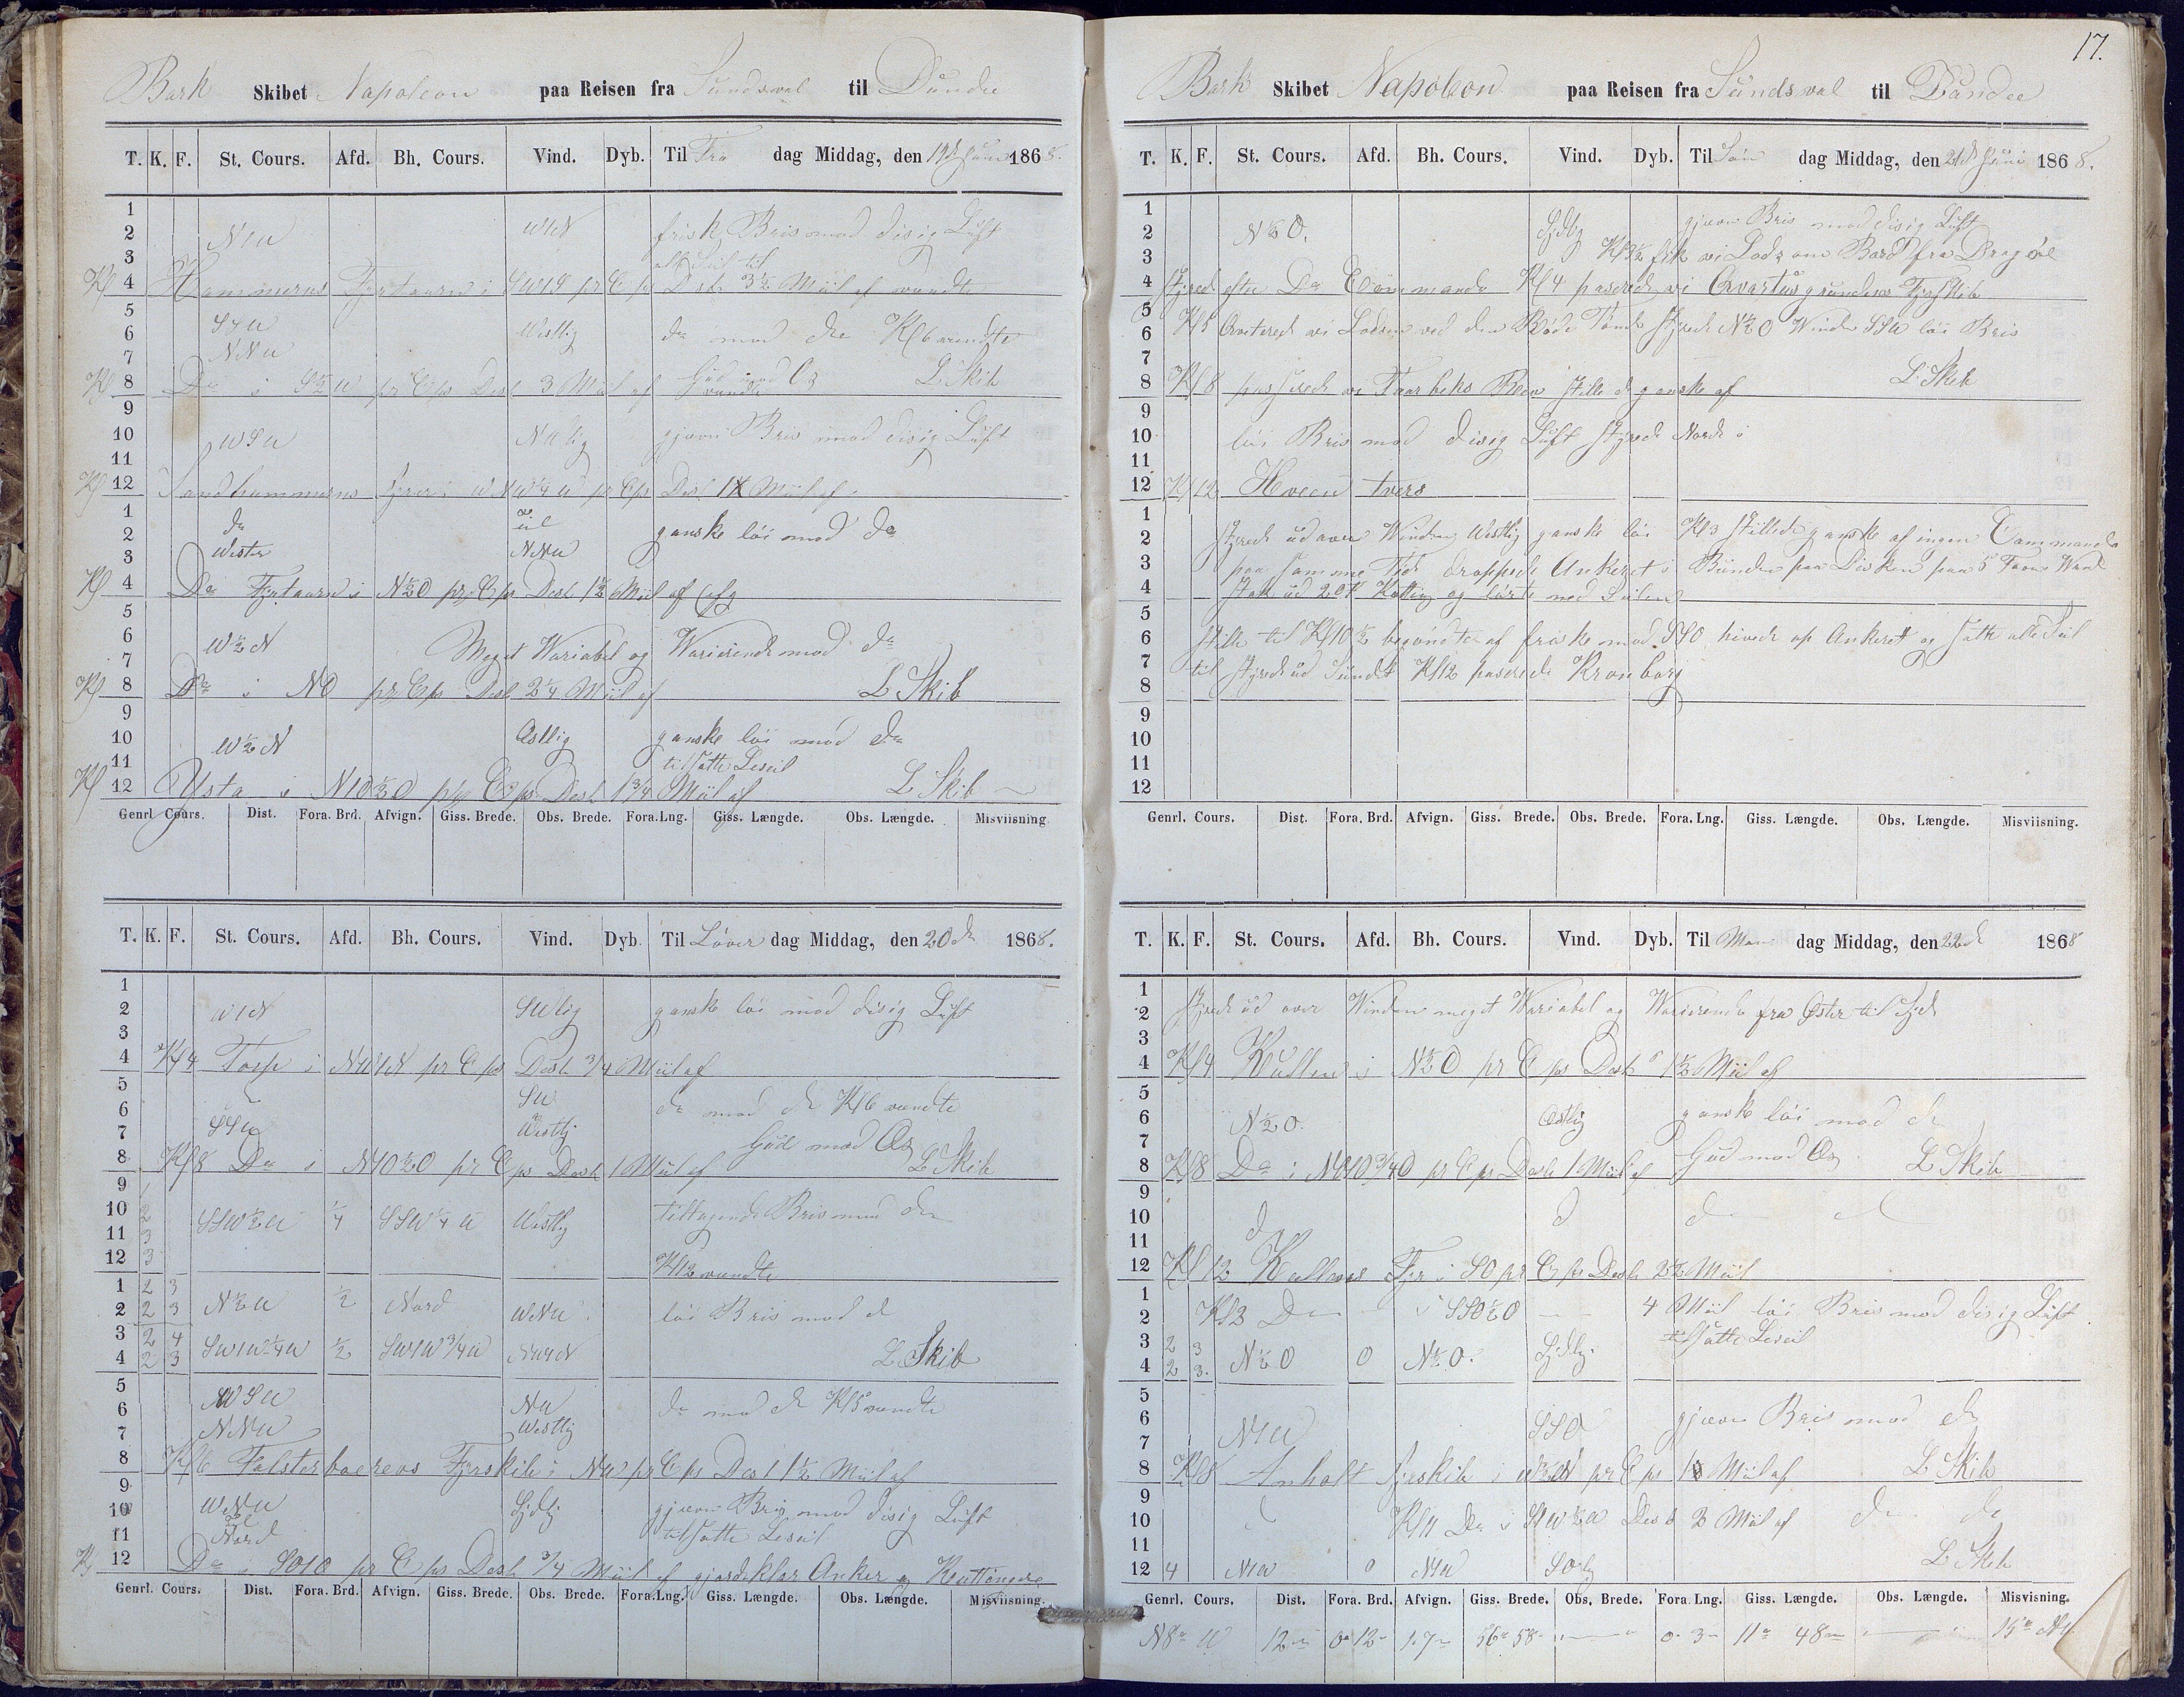 Bark Skibet Napoleon paa Reisen fra Sundsval til Dundee
T. K. F. St. Cours. Afd. Bh. Cours. Vind. Dyb. Til Fre dag Middag, den 19de Juni 1868.
1
2 N1W W1N frisk Bris med disig Luft
3 alle Seil til
Kl 4 Hammerens Fyrtaarn i SW1S pr Cps Dest 3½ Miil af vendte
5
6 SSW Westlig do med do Kl 6 vendte
7 NNW
Kl 8 Do i S½W pr Cps Dest 3 Miil af Gud med Os L. Skib
vendte
9
10 WSW NWlig gjævn Bris med disig Luft
11
Kl 12 Sandhammerens Fyr i WNW¼W pr Cps Dest 1½ Miil af
1 do til ganske löi med do
2
3 Wester NNW
Kl 4 Do Fyrtaarn i N½O pr Cps Dest 1½ Miil af
5
6 W½N Meget Variabel og Varierende med do
7
Kl 8 Do i NO pr Cps Dest 2¼ Miil af L. Skib
9
10 W½N Östlig ganske löi med do
11 tilsatte Leseil
Kl 12 Ysta i N10½O pr Cps Dest 1¾ Miil af L. Skib
Genrl. Cours. Dist. Fora. Brd. Afvign. Giss. Brede. Obs. Brede. Fora. Lng. Giss. Længde. Obs. Længde. Misviisning
T. K. F. St. Cours. Afd. Bh. Cours. Vind. Dyb. Til Löver dag Middag, den 20de 1868.
1
2 W1N SWlig ganske löi med disig Luft
3
4 Kl 4 Torp i NW1N pr Cps Dest ¾ Miil af
5 SW
6 do med do Kl 6 vendte
7 SSW Westlig Gud med Os
8 Kl 8 Do i N10½O pr Cps Dest 1 Miil af L. Skib
9
10 2 SSW½W ¼ SSW¼W Westlig tiltagende Bris med do
11 3
12 3 Kl 12 vendte
1 2 3
2 2 3 N½W ½ Nord WNW löi Bris med do
3 2 4 SW1W¼W ½ SW1W¾W NW1N
4 2 3 L. Skib
5 WSW NW
6 do med do Kl 5 vendte
7 NNW Westlig
8 Kl 6 Falsterboerevs Fyrskib i NW pr Cps Dest 1½ Miil af
9 WNW
10 til Sydlig gjævn Bris med disig Luft
11 Nord tilsatte Leseil
Kl 12 Do i SO1O pr Cps Dest ¾ Miil af gjorde klar Anker og Kjættingerne
Genrl. Cours. Dist. Fora. Brd. Afvign. Giss. Brede. Obs. Brede. Fora. Lng. Giss. Længde. Obs. Længde. Misviisning.
17.
Bark Skibet Napoleon paa Reisen fra Sundsval til Dundee
T. K. F. St. Cours. Afd. Bh. Cours. Vind. Dyb. Til Sön dag Middag, den 21de Juni 1868.
1 gjævn Bris med disig Luft
2 N½O. Sydlig
3 Kl 3½ fik vi Lods om Bord fra Dragöe
4 styrede efter Do Commando Kl 4 passerede vi Qvartus grundens Fyrskib
5
6 Kl 5 Qviterede vi Lodsen ved den Röde Tönde styrede N½O Winden SSW löi Bris
7 L. Skib
8 Kl 8 passerede vi Taarbeks Rev stille de ganske af
9
10 löi Bris med disig Luft styrede Nord i
11
12 Kl 12 Hveen tvers
1
2 styrede ud over Winden Westlig ganske löi Kl 3 stillede ganske af ingen Commando
3 paa samme Tid droppede Ankeret i Bunden paa Disken paa 5 Favne Vand
4 stak ud 20 F Kætting og bærte ned Seilene
5
6 stille til Kl 10½ begyndte at friske med SSO hivede op Ankeret og satte alle Seil
7 til styrede ud Sundet Kl 12 passerede Kronborg
8
9
10
11
12
Genrl. Cours. Dist. Fora. Brd. Afvign. Giss. Brede. Obs. Brede. Fora. Lng. Giss. Længde. Obs. Længde. Misviisning.
T. K. F. St. Cours. Afd. Bh. Cours. Vind. Dyb. Til Man dag Middag, den 22de 1868
1
2 styrede ud over Winden meget Variabel og Varierende fra Öster til Syd
3
4 Kl 4 Kullen i N½O pr Cps Dest 1½ Miil af
5
6 N½O. Östlig ganske löi med do
7
8 Kl 8 Do i N10¾O pr Cps Dest 1 Miil af Gud med Os. L. Skib
9
10 do d do d
11
12 Kl 12 Kullens Fyr i SO pr Cps Dest 2½ Miil
1
2 Kl 3 Do i SSO½O 4 Miil löi Bris med disig Luft
3 2 3 tilsatte Leseil
4 2 3. N½O 0 N½O. Sydlig.
5
6 gjævn Bris med do
7 N1W SSO
8 Kl 8 Anholt fyrskib i W½N pr Cps 1 Miil af L. Skib
9
10 Kl 11 Do i SW½W Dest 2 Miil af do do
11
12 4 N1W 0 N1W SOlig L. Skib
Genrl. Cours. Dist. Fora. Brd. Afvign. Giss. Brede. Obs. Brede. Fora. Lng. Giss. Længde. Obs. Længde. Misvisning.
N8° W 12 0° 12 1.7 56° 58 0. 3 11° 48 15° NW